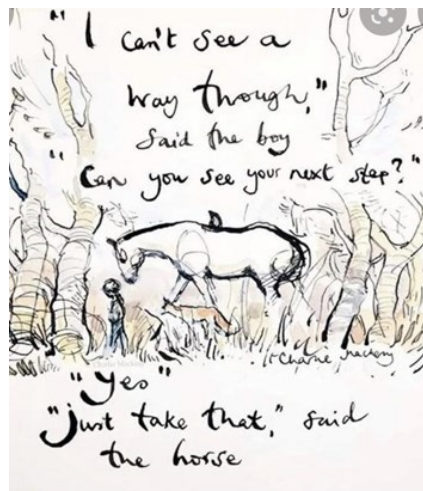 "I can't see a
way through,"
said the boy
"Can you see your next step?"
Charlie Mackesy
"Yes"
"Just take that," said
the horse